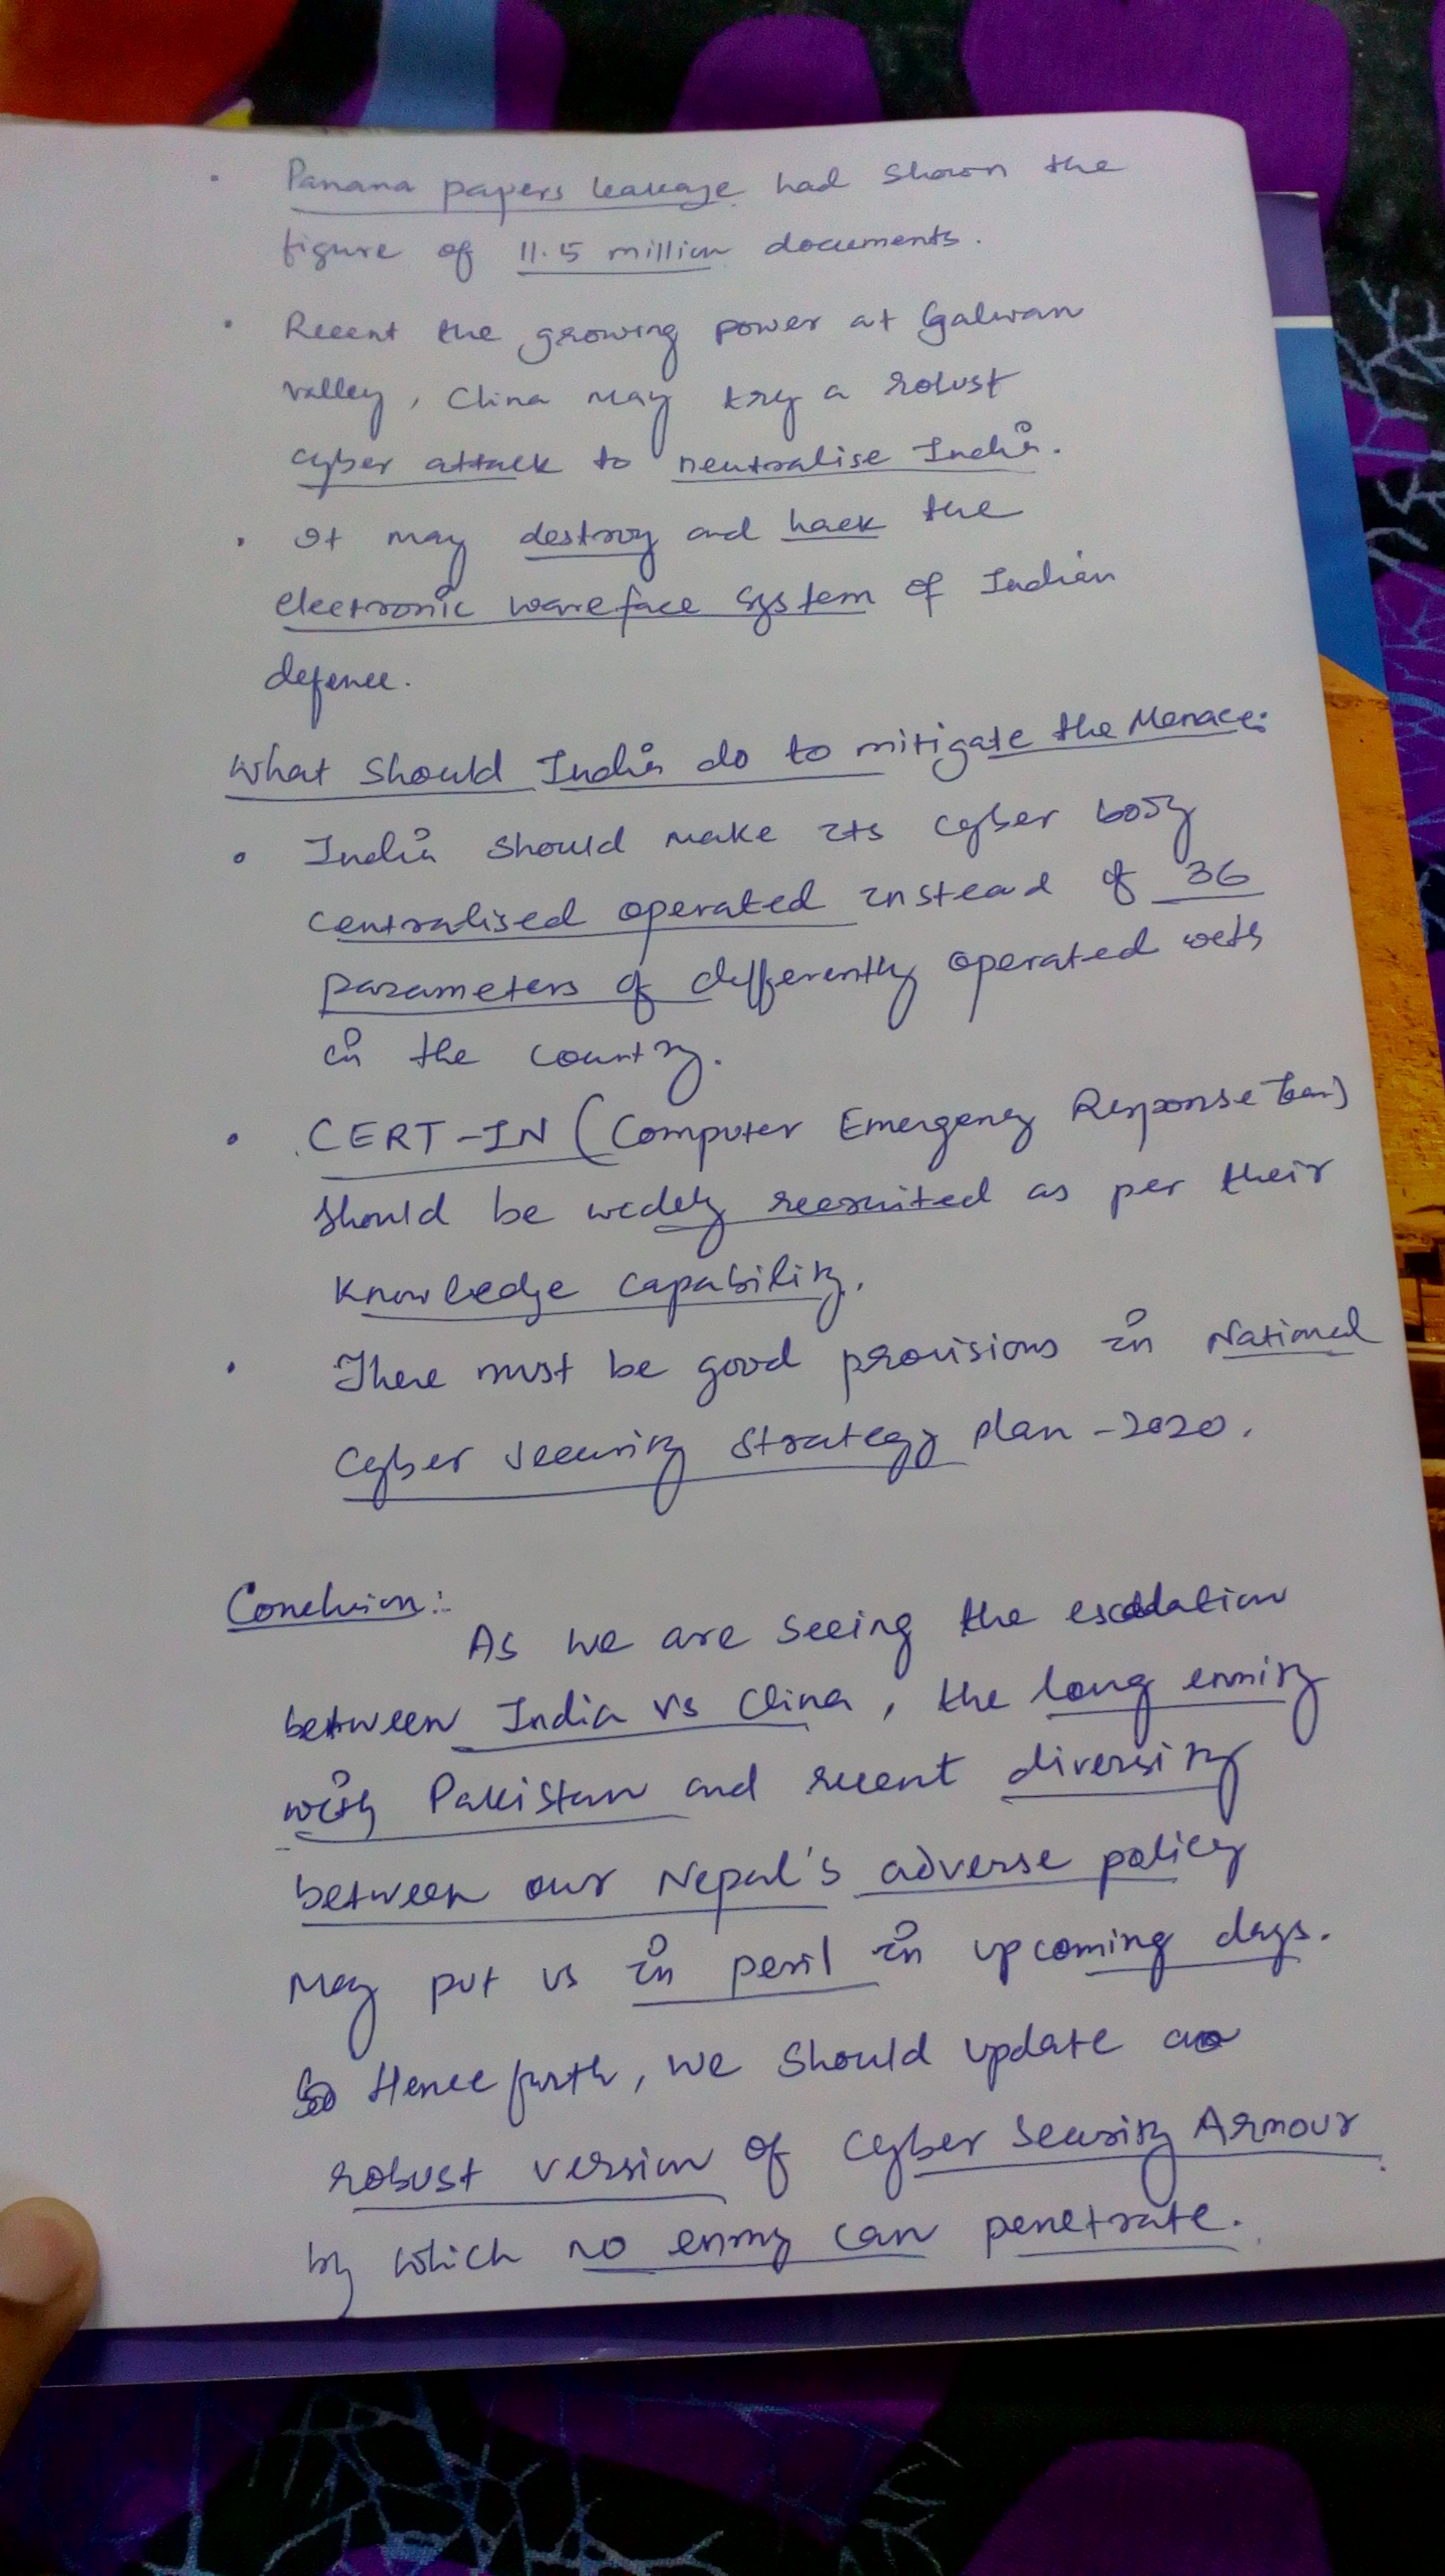 • Panama papers leakage had shown the
figure of 11.5 million documents.
• Recent the growing power at Galwan
valley, China may try a robust
cyber attack to neutralise India.
• It may destroy and hack the
electronic wareface system of Indian
defence.
What should India do to mitigate the Menace:
• India should make its cyber body
centralised operated instead of 36
parameters of differently operated
in the country.
• CERT-IN (Computer Emergency Response Team)
should be widely recruited as per their
knowledge capability.
• There must be good provisions in National
Cyber Security Strategy plan - 2020.
Conclusion:-
As we are seeing the escalation
between India vs China, the long enmity
with Pakistan and recent diversity
between our Nepal's adverse policy
may put us in peril in upcoming days.
Henceforth, we should update a
robust version of Cyber Security Armour
by which no enmy can penetrate.